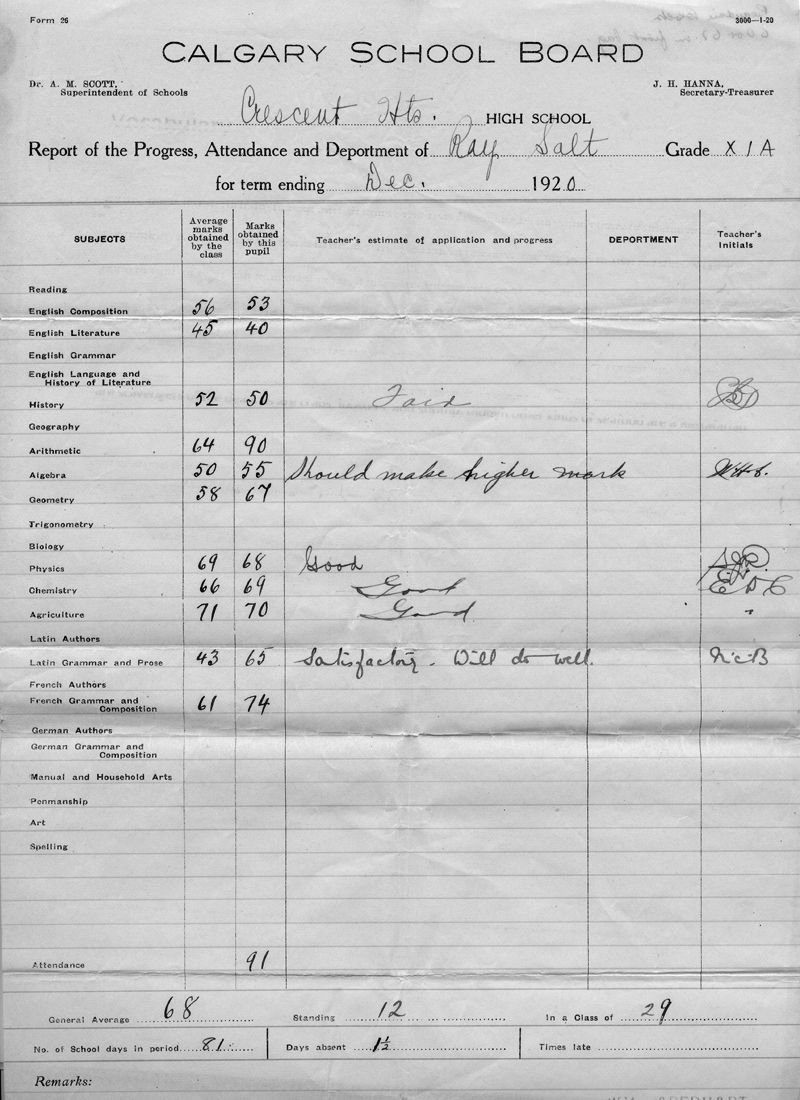 Form 26 3000—1-20
CALGARY SCHOOL BOARD
Dr. A. M. SCOTT, J. H. HANNA,
Superintendent of Schools Secretary-Treasurer
Crescent Hts. HIGH SCHOOL
Report of the Progress, Attendance and Deportment of Ray Salt Grade X I A
for term ending Dec. 1920
SUBJECTS Average marks obtained by the class Marks obtained by this pupil Teacher's estimate of application and progress DEPORTMENT Teacher's Initials
Reading
English Composition 56 53
English Literature 45 40
English Grammar
English Language and
History of Literature
History 52 50 Fair
Geography
Arithmetic 64 90
Algebra 50 55 Should make higher mark
Geometry 58 67
Trigonometry
Biology
Physics 69 68 Good
Chemistry 66 69 Good
Agriculture 71 70 Good "
Latin Authors
Latin Grammar and Prose 43 65 Satisfactory. Will do well. McB
French Authors
French Grammar and
Composition 61 74
German Authors
German Grammar and
Composition
Manual and Household Arts
Penmanship
Art
Spelling
Attendance 91
General Average 68 Standing 12 In a Class of 29
No. of School days in period 81 Days absent 1½ Times late
Remarks: